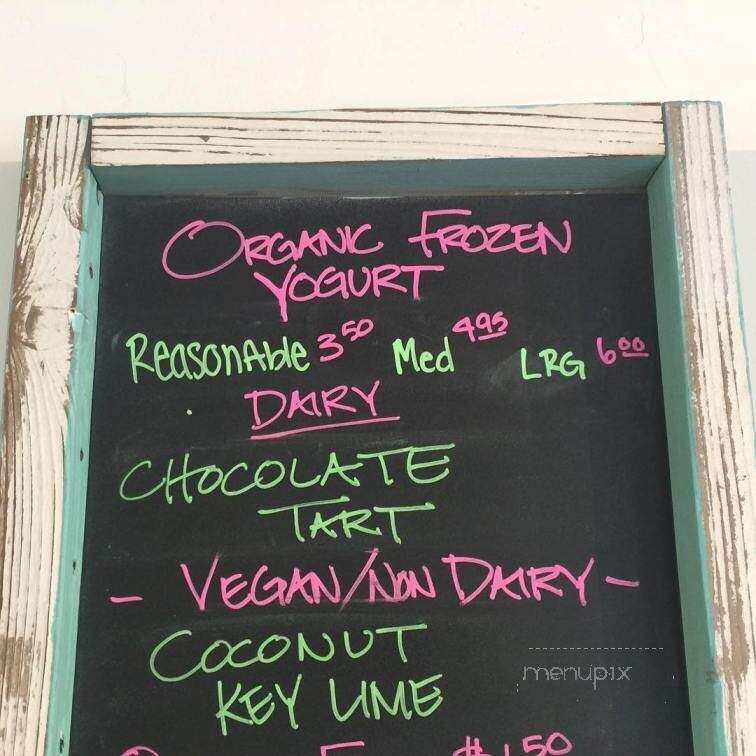 ORGANIC FROZEN
YOGURT
ReasonAble 3.50 Med 4.95 LRG 6.00
DAIRY
CHOCOLATE
TART
- VEGAN/NON DAIRY -
COCONUT
KEY LIME
menupix